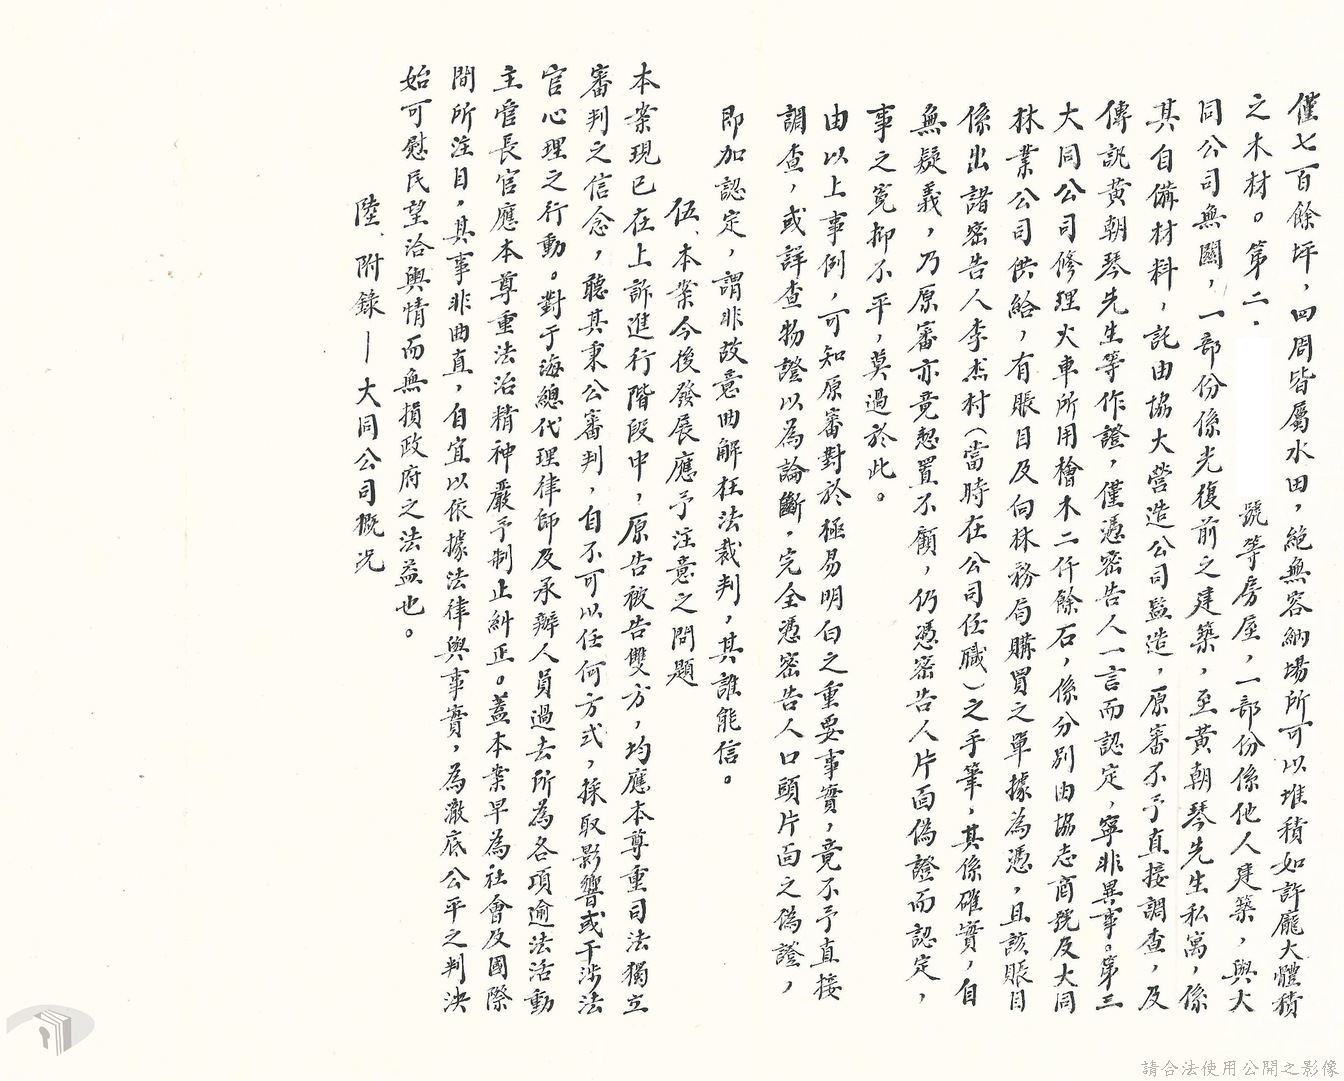 僅七百餘坪，四周皆屬水田，絕無容納場所可以堆積如許龐大體積
之木材。第二．號等房屋，一部份係他人建築，與大
同公司無關，一部份係光復前之建築，至黃朝琴先生私寓，係
其自備材料，託由協大營造公司監造，原審不予直接調查，及
傳訊黃朝琴先生等作證，僅憑密告人一言而認定，寧非異事。第三
大同公司修理火車所用檜木二仟餘石，係分別由協志商號及大同
林業公司供給，有賬目及向林務局購買之單據為憑，且該賬目
係出諸密告人李杰村（當時在公司任職）之手筆，其係確實，自
無疑義，乃原審亦竟恝置不顧，仍憑密告人片面偽證而認定，
事之冤抑不平，莫過於此。
由以上事例，可知原審對於極易明白之重要事實，竟不予直接
調查，或詳查物證以為論斷，完全憑密告人口頭片面之偽證，
即加認定，謂非故意曲解枉法裁判，其誰能信。
伍、本案今後發展應予注意之問題
本案現已在上訴進行階段中，原告被告雙方，均應本尊重司法獨立
審判之信念，聽其秉公審判，自不可以任何方式，採取影響或干涉法
官心理之行動。對于海總代理律師及承辦人員過去所為各項逾法活動
主管長官應本尊重法治精神嚴予制止糾正。蓋本案早為社會及國際
間所注目，其事非曲直，自宜以依據法律與事實，為澈底公平之判決
始可慰民望洽輿情而無損政府之法益也。
陸、附錄—大同公司概況
請合法使用公開之影像